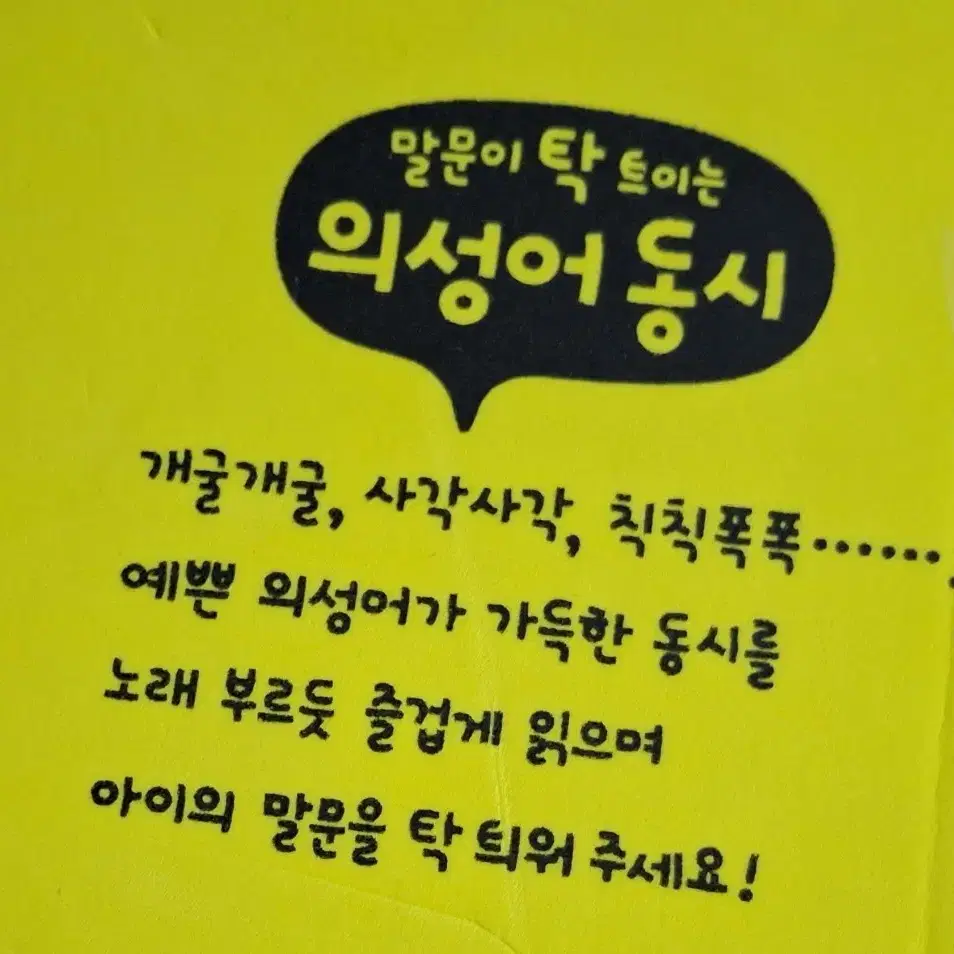 말문이 탁 트이는
의성어 동시
개굴개굴, 사각사각, 칙칙폭폭……
예쁜 의성어가 가득한 동시를
노래 부르듯 즐겁게 읽으며
아이의 말문을 탁 틔워 주세요!